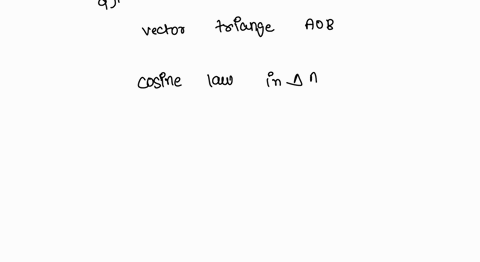 vector triange AOB
cosine law in Δ A